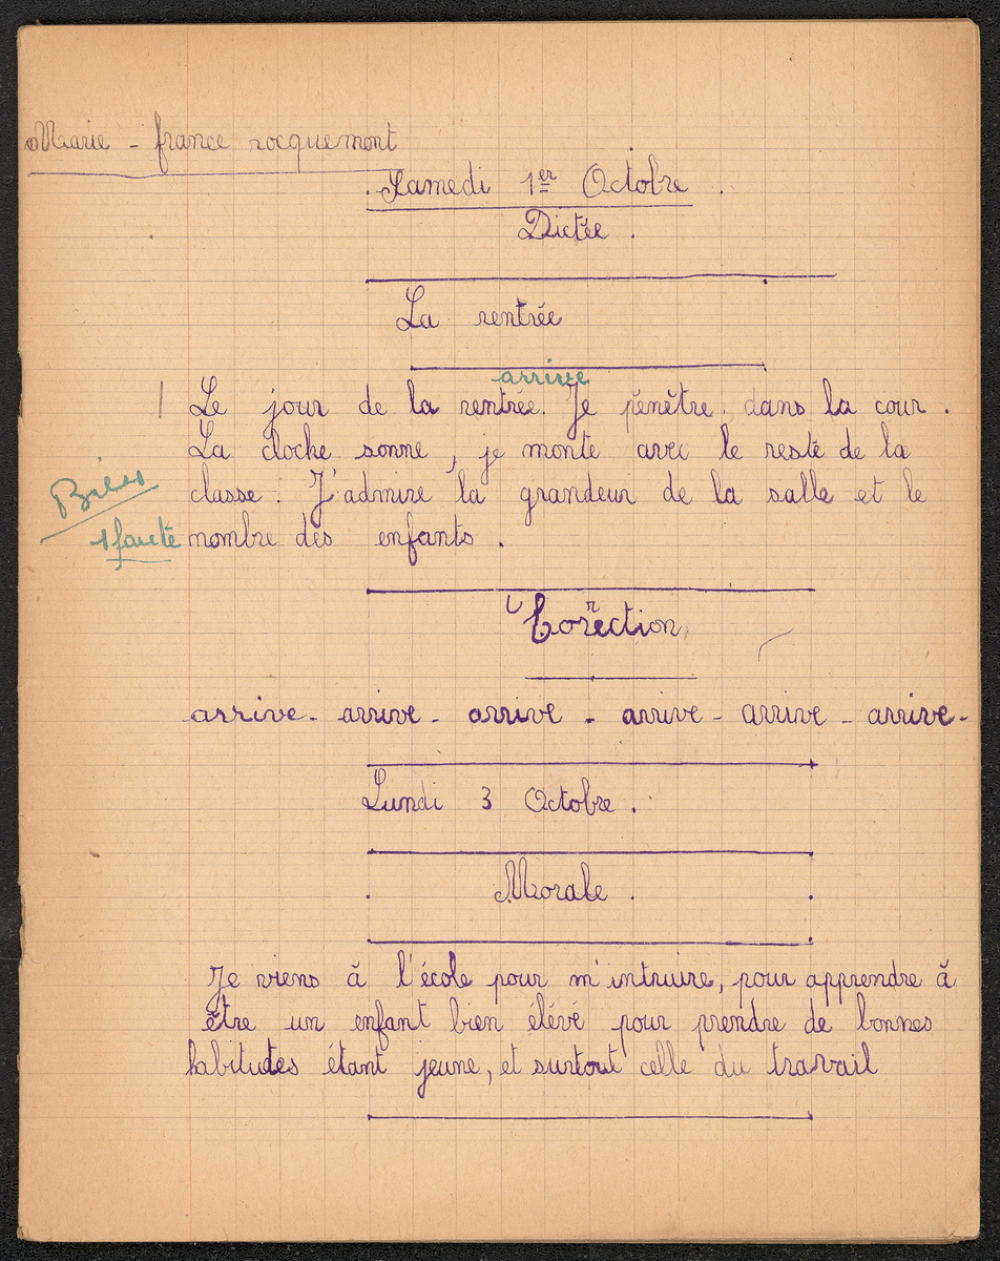 Marie - france rocquemont
Samedi 1er Octobre .
Dictée .
La rentrée
arrive
Le jour de la rentrée. Je pénètre dans la cour .
La cloche sonne , je monte avec le reste de la
classe . J'admire la grandeur de la salle et le
Bien
1 faute
nombre des enfants .
Correction
arrive - arrive - arrive - arrive - arrive - arrive -
Lundi 3 Octobre .
Morale .
Je viens à l'école pour m'intruire, pour apprendre à
être un enfant bien élévé pour prendre de bonnes
habitudes étant jeune, et surtout celle du travail